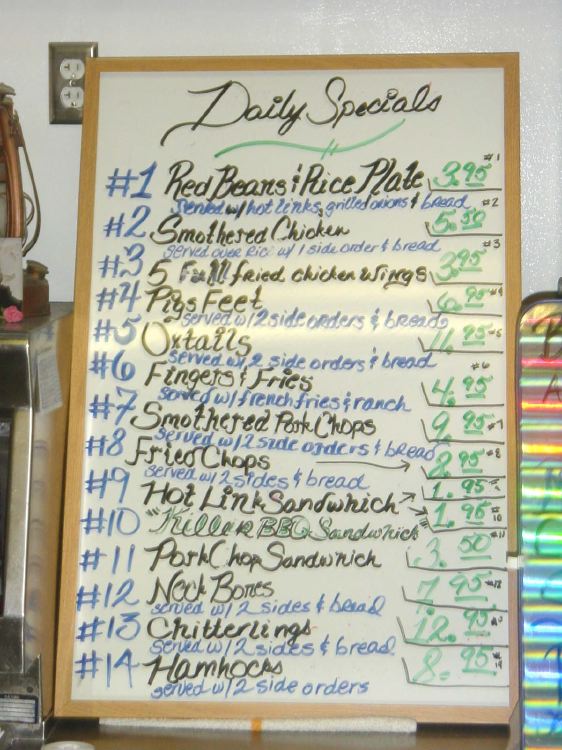 Daily Specials
#1 Red Beans & Rice Plate 3.95 #1
served w/ hot links, grilled onions & bread
#2 Smothered Chicken 5.50 #2
served over Rice w/ 1 side order & bread
#3 5 Full fried chicken wings 3.95 #3
#4 Pigs Feet 6.95 #4
served w/ 2 side orders & bread
#5 Oxtails 11.95 #5
served w/ 2 side orders & bread
#6 Fingers & Fries 4.95 #6
served w/ french fries & ranch
#7 Smothered Pork Chops 9.95 #7
served w/ 2 side orders & bread
#8 Fried Chops 8.95 #8
served w/ 2 sides & bread
#9 Hot Link Sandwhich 1.95
#10 "Killer BBQ Sandwhich" 1.95 #10
#11 Pork Chop Sandwhich 3.50 #11
#12 Neck Bones 7.95 #12
served w/ 2 sides & bread
#13 Chitterlings 12.95
served w/ 2 sides & bread
#14 Hamhocks 8.95 #14
served w/ 2 side orders